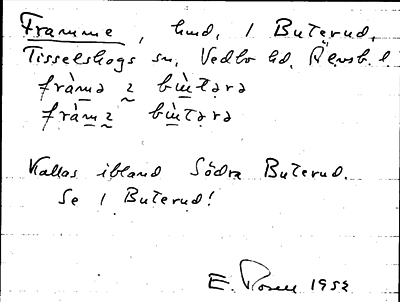 Framme, hmd, 1 Buterud,
Tisselskogs sn, Vedbo hd, Älvsb. l.
fràmə 2 bẁtərə
fràmə 2 bẁtərə
Kallas ibland Södra Buterud.
Se 1 Buterud!
E. Rosell 1952